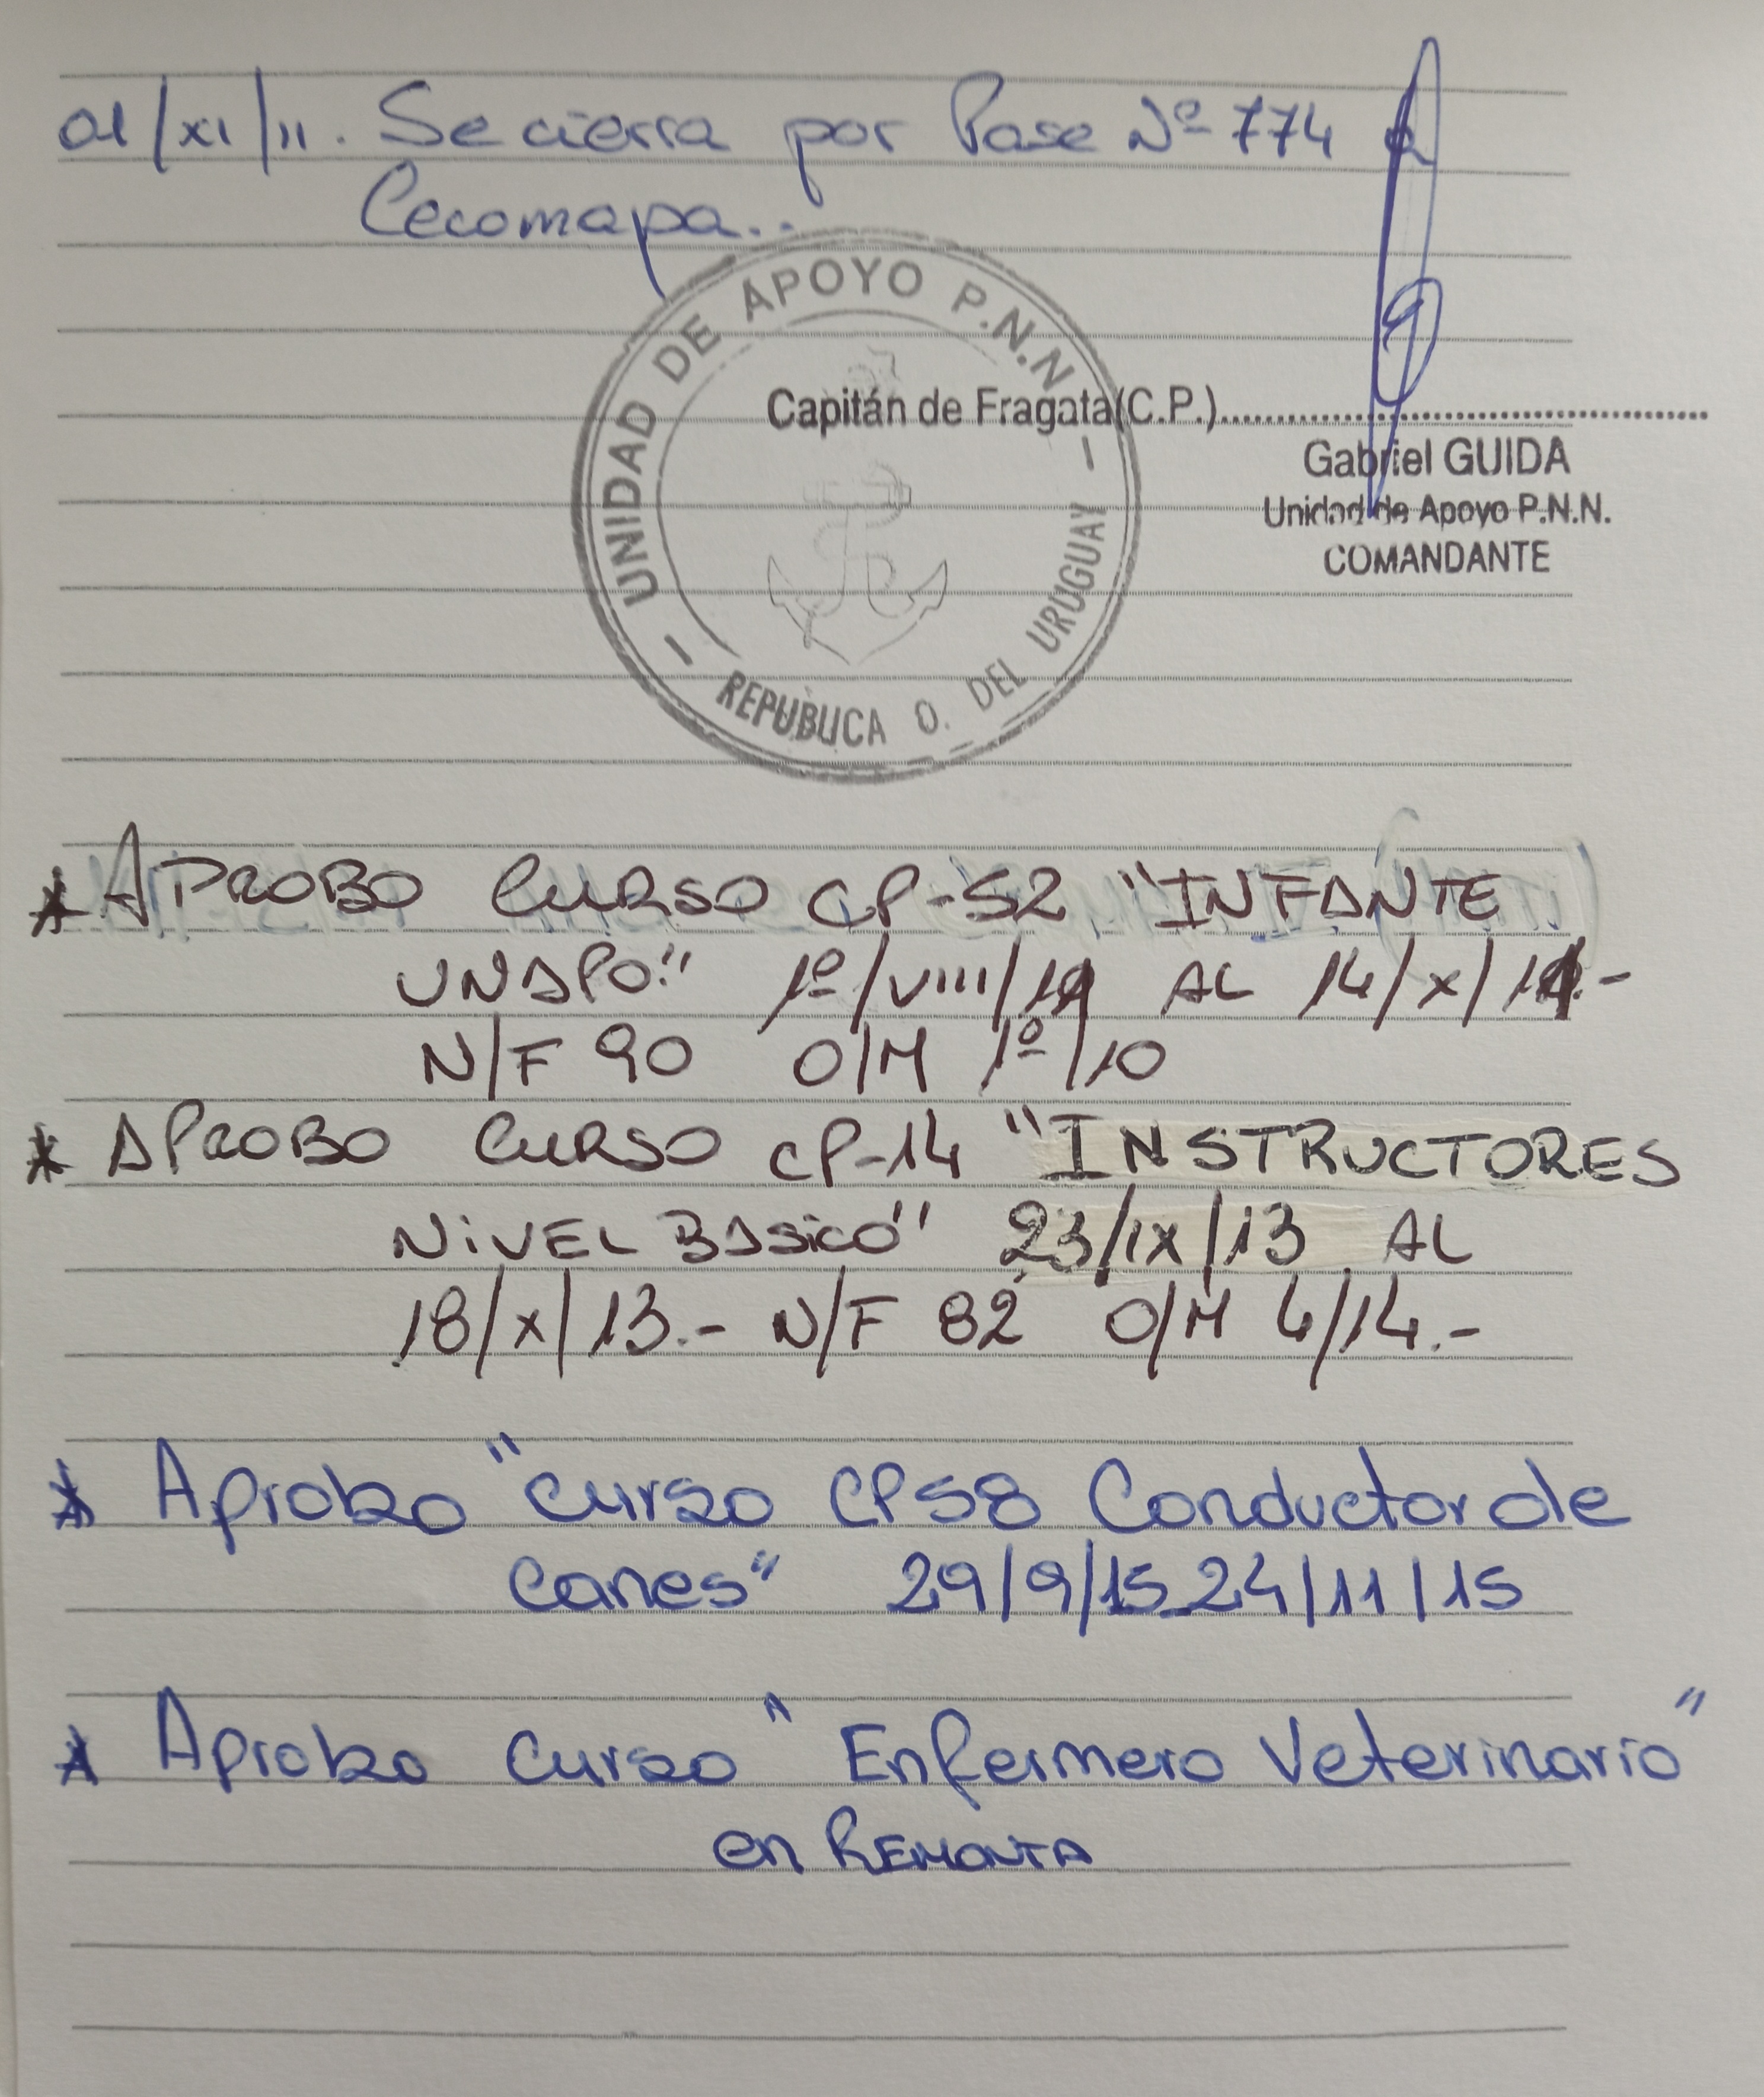 01/XI/11. Se cierra por Pase Nº 774 a
Cecomapa..
UNIDAD DE APOYO P.N.N
REPUBLICA O. DEL URUGUAY
Capitán de Fragata (C.P.)
Gabriel GUIDA
Unidad de Apoyo P.N.N.
COMANDANTE
* APROBO CURSO CP-52 "INFANTE
UNAPO" 1º/VIII/11 AL 14/X/11.-
N/F 90 O/M 1º/10
* APROBO CURSO CP-14 "INSTRUCTORES
NIVEL BASICO" 23/IX/13 AL
18/X/13.- N/F 82 O/M 4/14.-
* Aprobo "curso CP58 Conductor de
Canes" 29/9/15_24/11/15
* Aprobo curso "Enfermero Veterinario"
en REMONTA